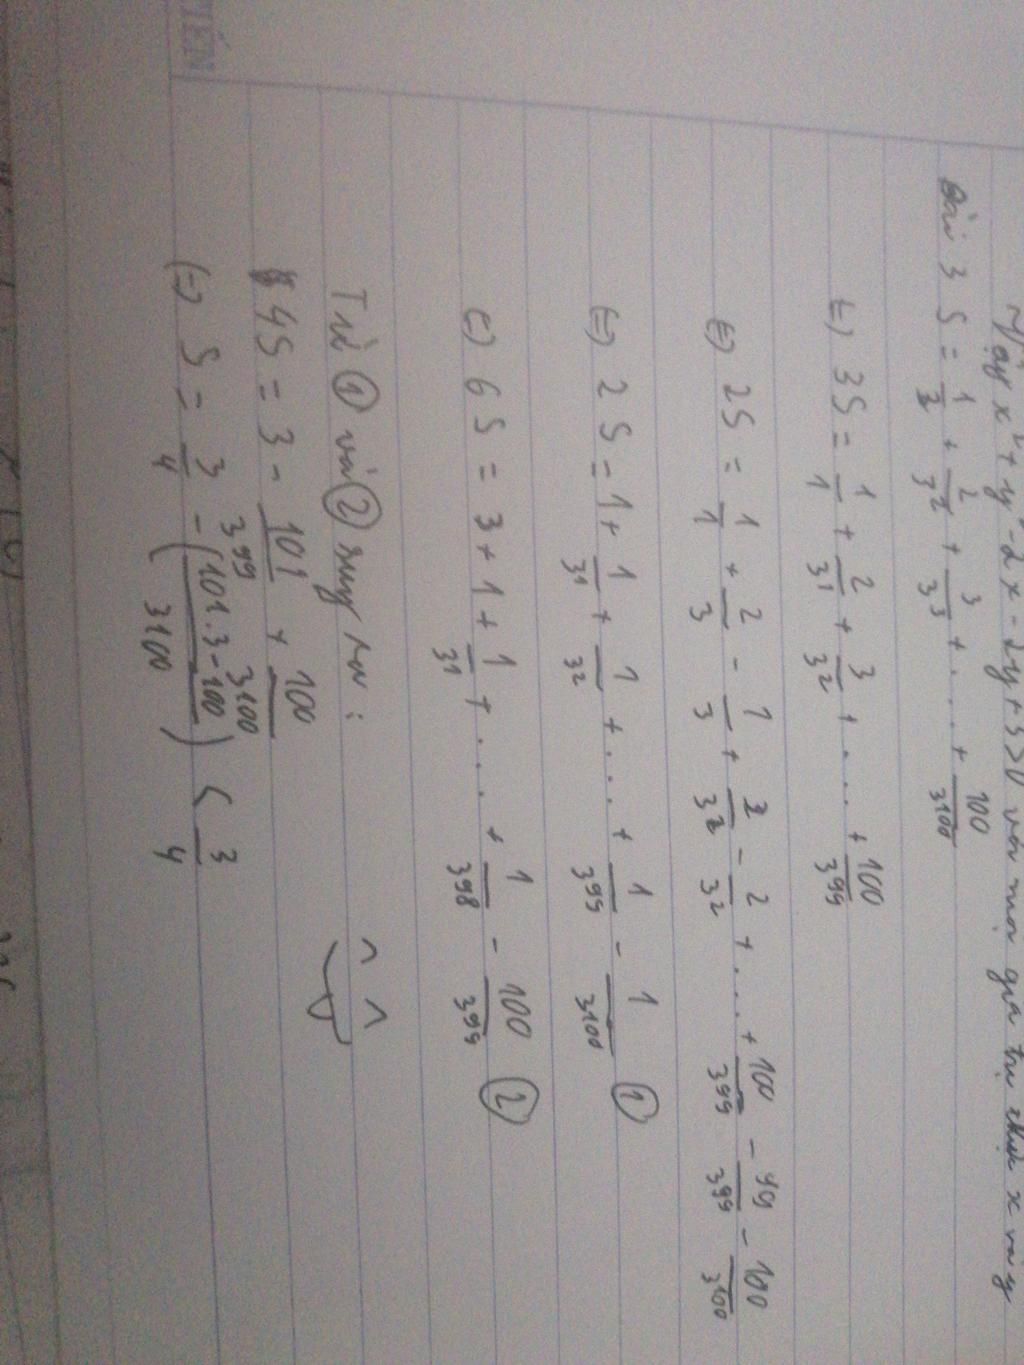 Vậy x² + y² - 2x - 2y + 3 > 0 với mọi giá trị x và y
Bài 3 S = 1/3 + 2/3² + 3/3³ + .... + 100/3^100
(=) 3S = 1/1 + 2/3^1 + 3/3^2 + .... + 100/3^99
(=) 2S = 1/1 + 2/3 - 1/3 + 3/3^2 - 2/3^2 + .... + 100/3^99 - 99/3^99 - 100/3^100
(=) 2S = 1 + 1/3^1 + 1/3^2 + ... + 1/3^99 - 1/3^100 ①
(=) 6S = 3 + 1 + 1/3^1 + .... + 1/3^98 - 100/3^99 ②
Từ ① và ② suy ra :
4S = 3 - 101/3^99 + 100/3^100
(=) S = 3/4 - (101.3-100/3^100) < 3/4
TIẾN